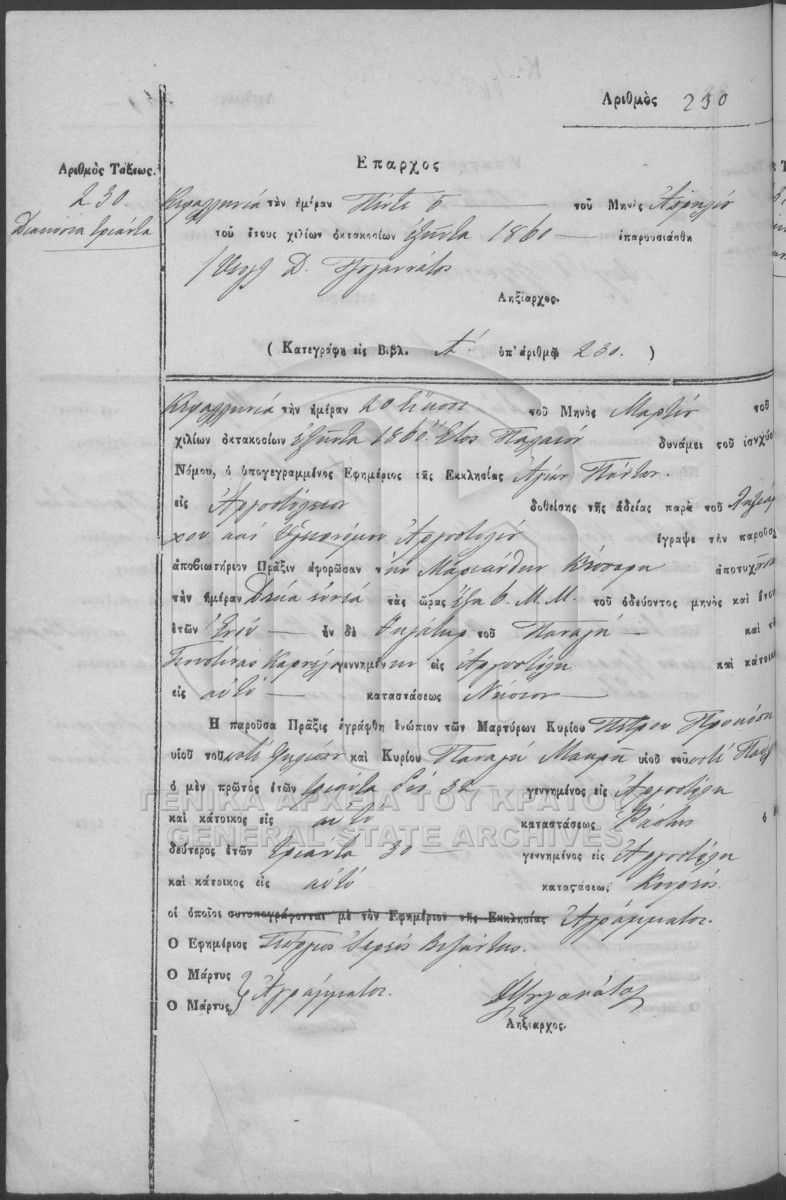 Αριθμὸς 230
Αριθμὸς Τάξεως.
230.
Διακόσια τριάντα
Επαρχος
Κεφαλληνία τὴν ἡμέραν Πέντε 5 τοῦ Μηνὸς Ἀπριλίου
τοῦ ἔτους χιλίων ὀκτακοσίων ἑξῆντα 1860 ἐπαρουσιάσθη
Ληξίαρχος.
( Κατεγράφη εἰς Βιβλ. Α΄. ὑπ' ἀριθμῷ 230. )
Κεφαλληνία τὴν ἡμέραν 20 Εἴκοσι τοῦ Μηνὸς Μαρτίου τοῦ
χιλίων ὀκτακοσίων ἑξῆντα 1860 Ἔτος Παλαιόν δυνάμει τοῦ ἰσχύο
Νόμου, ὁ ὑπογεγραμμένος Ἐφημέριος τῆς Εκκλησίας Ἁγίων Πάντων.
εἰς Ἀργοστόλιον δοθείσης τῆς ἀδείας παρὰ τοῦ Ληξιάρ
χου καὶ Ἀργοστολίου ἔγραψε τὴν παροῦσα
ἀποβιωτήριον Πρᾶξιν ἀφορῶσαν τὴν Μαριάνθην ἀποτυχ
τὴν ἡμέραν Δέκα ἐννιά τὰς ὥρας ἕξη 6. Μ. Μ. τοῦ ὁδεύοντος μηνὸς καὶ ἔτου
ἐτῶν Ἑνός ἣν δὲ θυγάτηρ τοῦ Παναγῆ καὶ τῆ
γεννημένην εἰς Ἀργοστόλι καὶ κάτοικο
εἰς αὐτό καταστάσεως Νήπιον
Ἡ παροῦσα Πρᾶξις ἐγράφθη ἐνώπιον τῶν Μαρτύρων Κυρίου Πέτρου
υἱοῦ τοῦ ποτέ καὶ Κυρίου Παναγῆ Μακρῆ υἱοῦ τοῦ ποτέ
ὁ μὲν πρῶτος ἐτῶν τριάντα δύο 32 γεννημένος εἰς Ἀργοστόλι
καὶ κάτοικος εἰς αὐτό καταστάσεως Ράπτης ὁ
δεύτερος ἐτῶν τριάντα 30 γεννημένος εἰς Ἀργοστόλι
καὶ κάτοικος εἰς αὐτό καταστάσεως
οἱ ὁποῖοι συνυπογράφονται μὲ τὸν Ἐφημέριον τῆς Εκκλησίας Ἀγράμματοι.
Ο Ἐφημέριος Γεώργιος Ἱερεύς
Ο Μάρτυς
Ο Μάρτυς } Ἀγράμματοι.
Ληξίαρχος.
ΓΕΝΙΚΑ ΑΡΧΕΙΑ ΤΟΥ ΚΡΑΤΟΥΣ
GENERAL STATE ARCHIVES